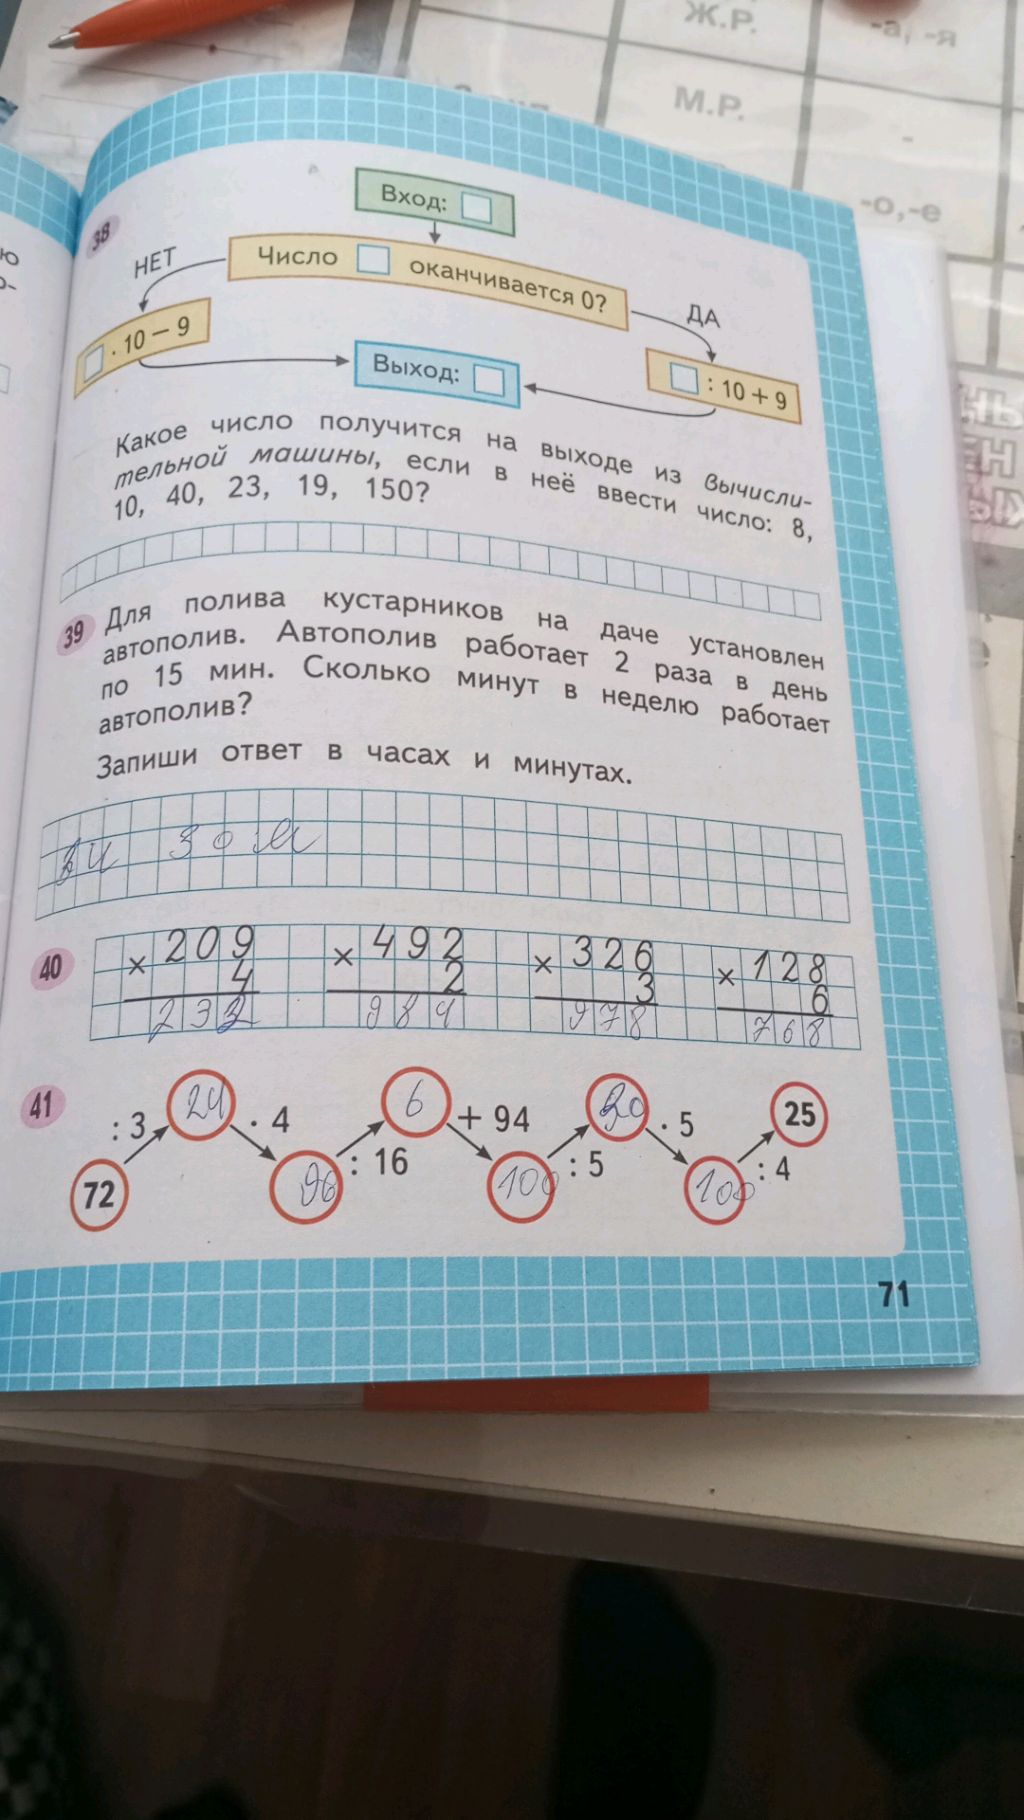 Ж.Р.
-а, -я
М.Р.
-о,-е
38
Вход:
Число оканчивается 0?
НЕТ
ДА
· 10 − 9
Выход:
: 10 + 9
Какое число получится на выходе из вычисли-
тельной машины, если в неё ввести число: 8,
10, 40, 23, 19, 150?
39 Для полива кустарников на даче установлен
автополив. Автополив работает 2 раза в день
по 15 мин. Сколько минут в неделю работает
автополив?
Запиши ответ в часах и минутах.
3ч 30 м
40
× 209 × 492 × 326 × 128
4 2 3 6
232 984 978 768
41
: 3 24 · 4 6 + 94 20 · 5 25
72 96 : 16 100 : 5 100 : 4
71